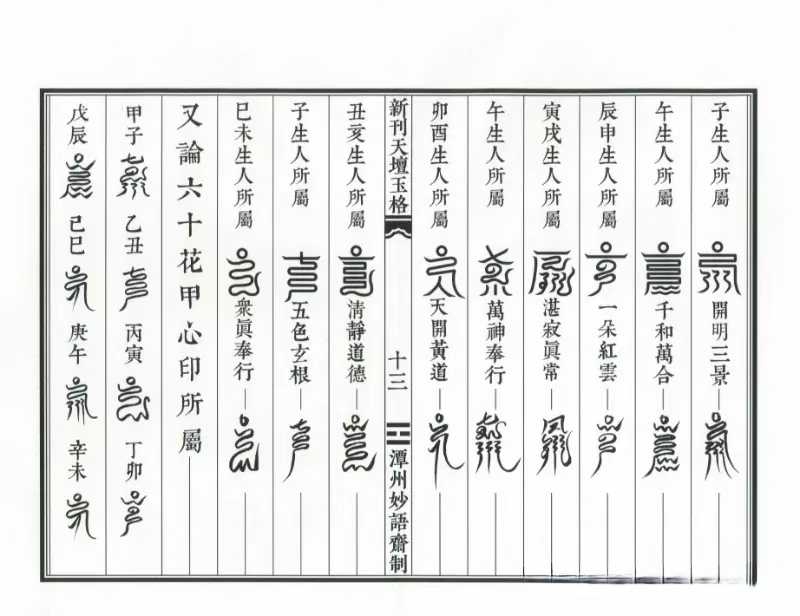 子生人所屬 開明三景
午生人所屬 千和萬合
辰申生人所屬 一朵紅雲
寅戌生人所屬 湛寂眞常
午生人所屬 萬神奉行
卯酉生人所屬 天開黃道
新刊天壇玉格 十三 潭州妙語齋制
丑亥生人所屬 清靜道德
子生人所屬 五色玄根
巳未生人所屬 衆眞奉行
又論六十花甲心印所屬
甲子 乙丑 丙寅 丁卯
戊辰 己巳 庚午 辛未